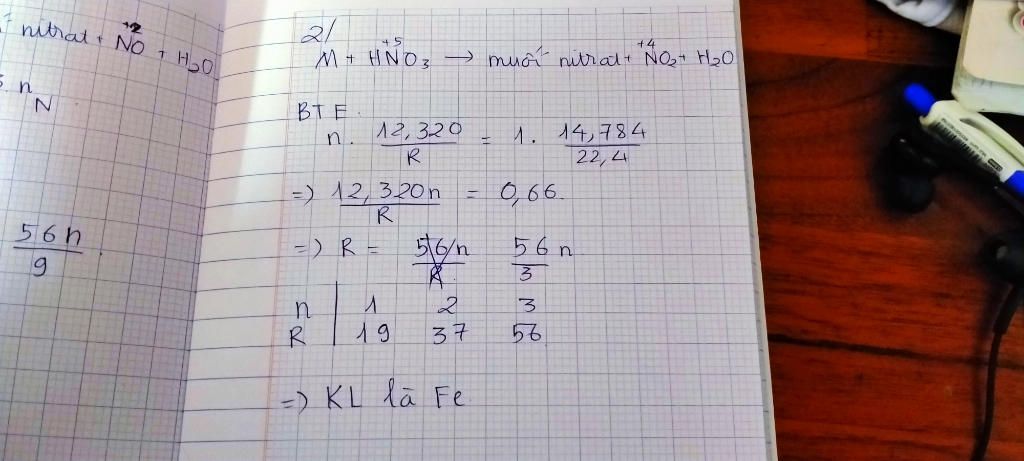 nitrat + NO + H2O
+2
n
N
56n
9
2/
+5 +4
M + HNO3 → muối nitrat + NO2 + H2O
BTE.
n. 12,320/R = 1. 14,784/22,4
=) 12,320n/R = 0,66.
=) R = 56n/3
n | 1 2 3
R | 19 37 56
=) KL là Fe